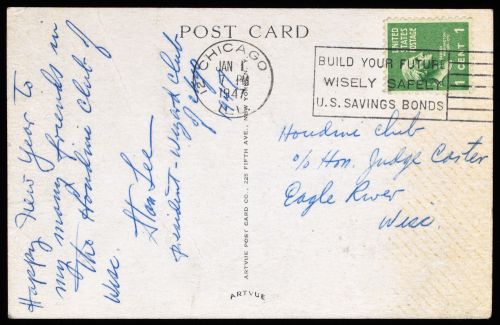 POST CARD
Happy New Year To
my many friends in
The Houdini Club of
Wisc.
Stan Lee
president - Wizard Club
of Chgo
CHICAGO
JAN 1
7 PM
1947
ILL.
BUILD YOUR FUTURE
WISELY SAFELY
U.S. SAVINGS BONDS
UNITED
STATES
POSTAGE
1 CENT 1
Houdini Club
c/o Hon. Judge Carter
Eagle River
Wisc.
ARTVUE POST CARD CO., 225 FIFTH AVE., NEW YORK
ARTVUE